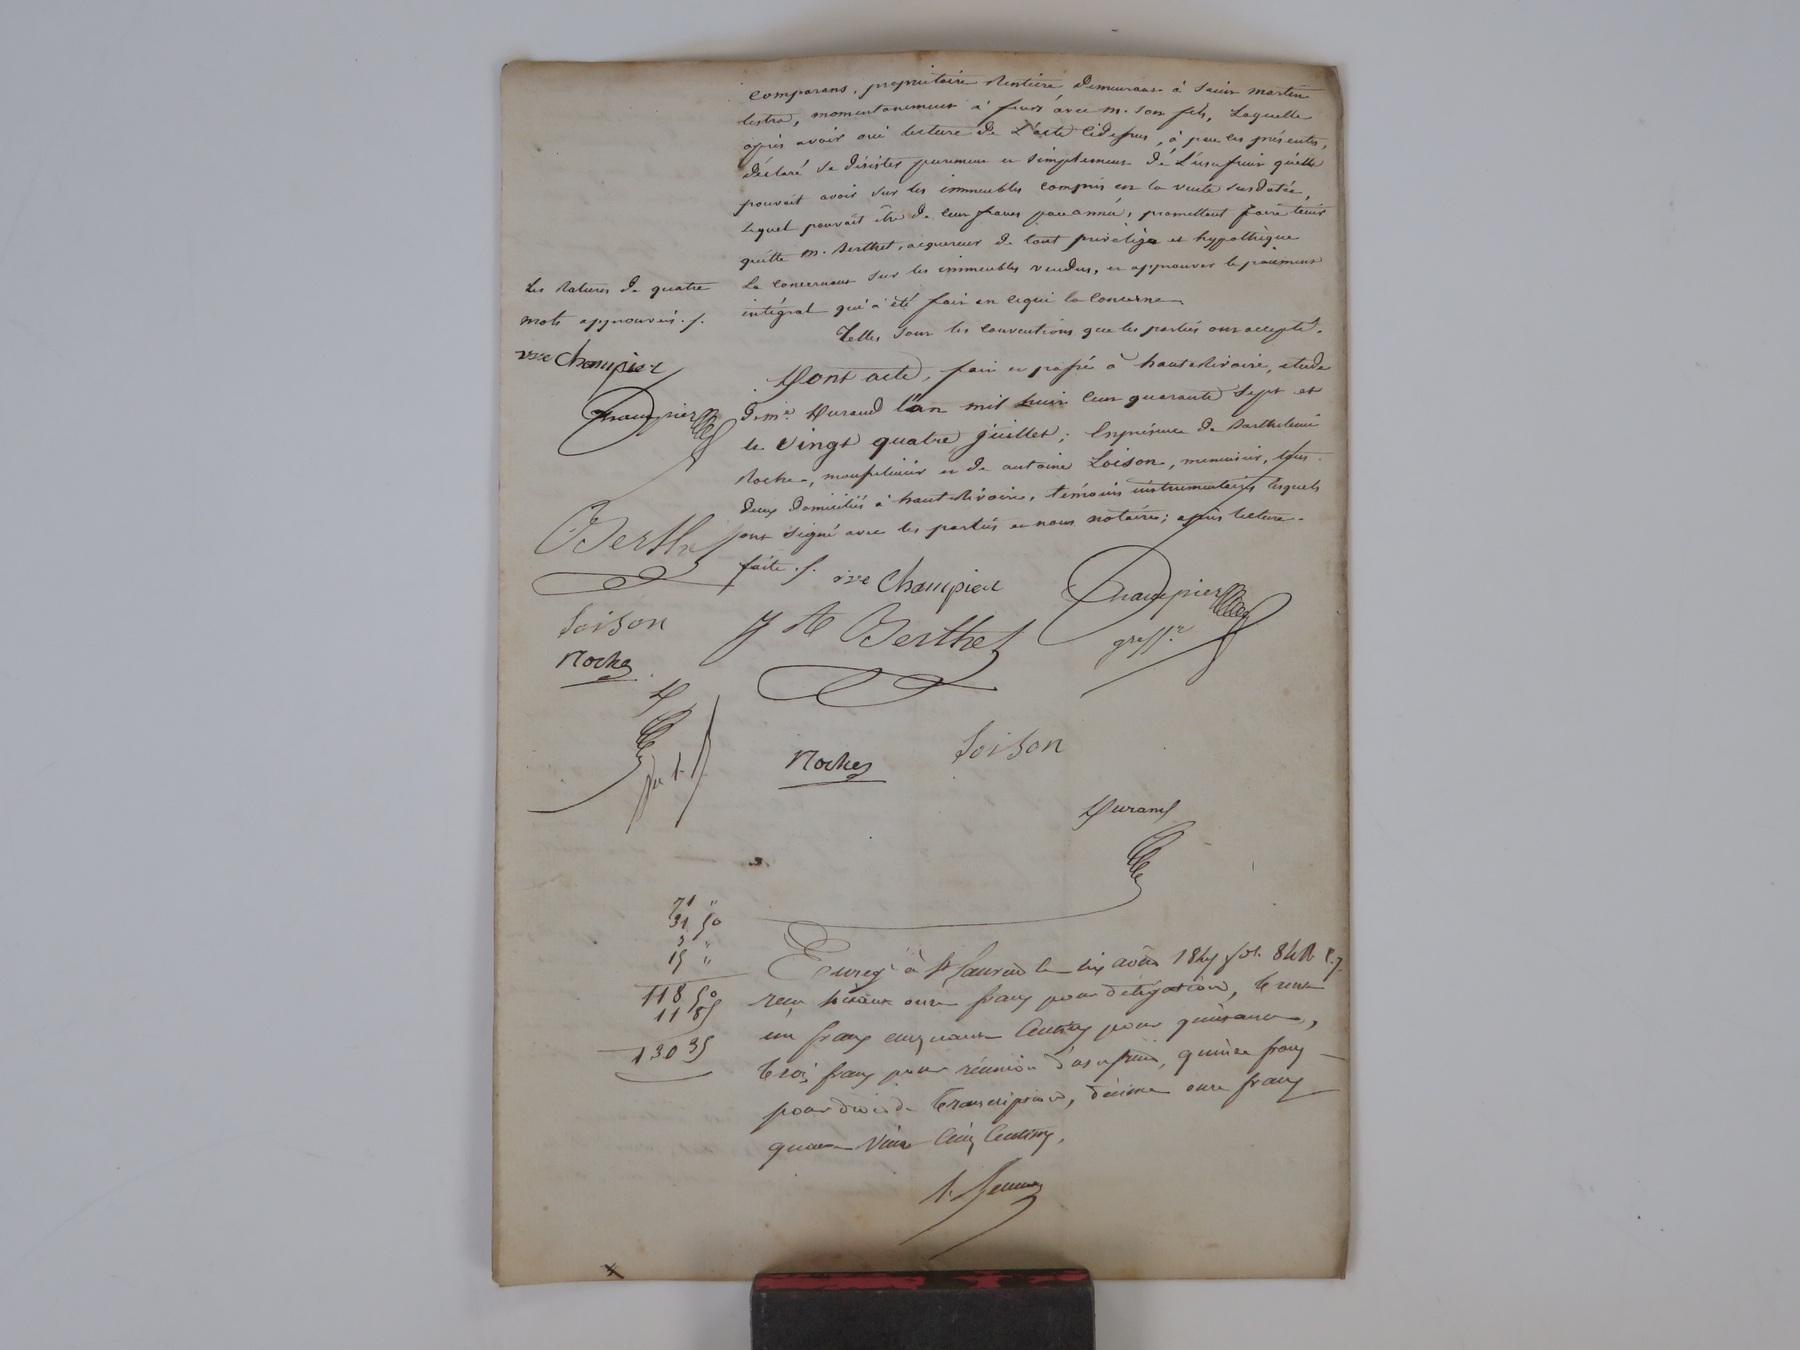 comparans, propriétaire rentière demeurant à Saint martin
lestra, momentanement à avec m. son fils, Laquelle
après avoir oui lecture de L'acte cidessus, a par ces présentes,
déclaré se désister purement et simplement de L'usufruit qu'elle
pouvait avoir sur les immeubles compris en la vente susdatée,
lequel pouvait être de cent francs par année, promettant faire tenir
quitte m. Berthet, acquereur de tout privilége et hypothèque
la concernant sur les immeubles vendus, et approuver le paiement
intégral qui a été fait en cequi la concerne.
Les ratures de quatre
mots approuvés ./.
vve Champier
Champier
Berthet
Loison
Roche
Telles sont les conventions que les parties ont accepté.
Dont acte, fait et passé à hauterivoire, etude
de me. Durand l'an mil huit cent quarante sept et
le vingt quatre juillet; En présence de Barthelemi
Roche, et de antoine Loison, menuisier, tous
deux domiciliés à hauterivoire, témoins instrumentaires lesquels
ont signé avec les parties et nous notaire; après lecture
faite ./.
vve Champier
Champier
greff.r
J Berthet
Roche
Loison
Durand
71 "
31 50
3 "
15 "
118 50
11 85
130 35
Enreg à St Laurent le dix août 1847 fol. 84 R c. 7
reçu soixante onze francs pour délégation, trente
un francs cinquante centimes pour quittance,
trois francs pour réunion d'usufruit, quinze francs
pour droit de transcription, décime onze francs
quatre vingt cinq centimes.